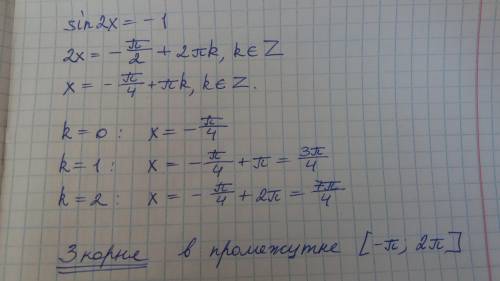 sin2x = -1
2x = -π/2 + 2πk, k∈Z
x = -π/4 + πk, k∈Z.
k=0: x = -π/4
k=1: x = -π/4 + π = 3π/4
k=2: x = -π/4 + 2π = 7π/4
3 корня в промежутке [-π, 2π]